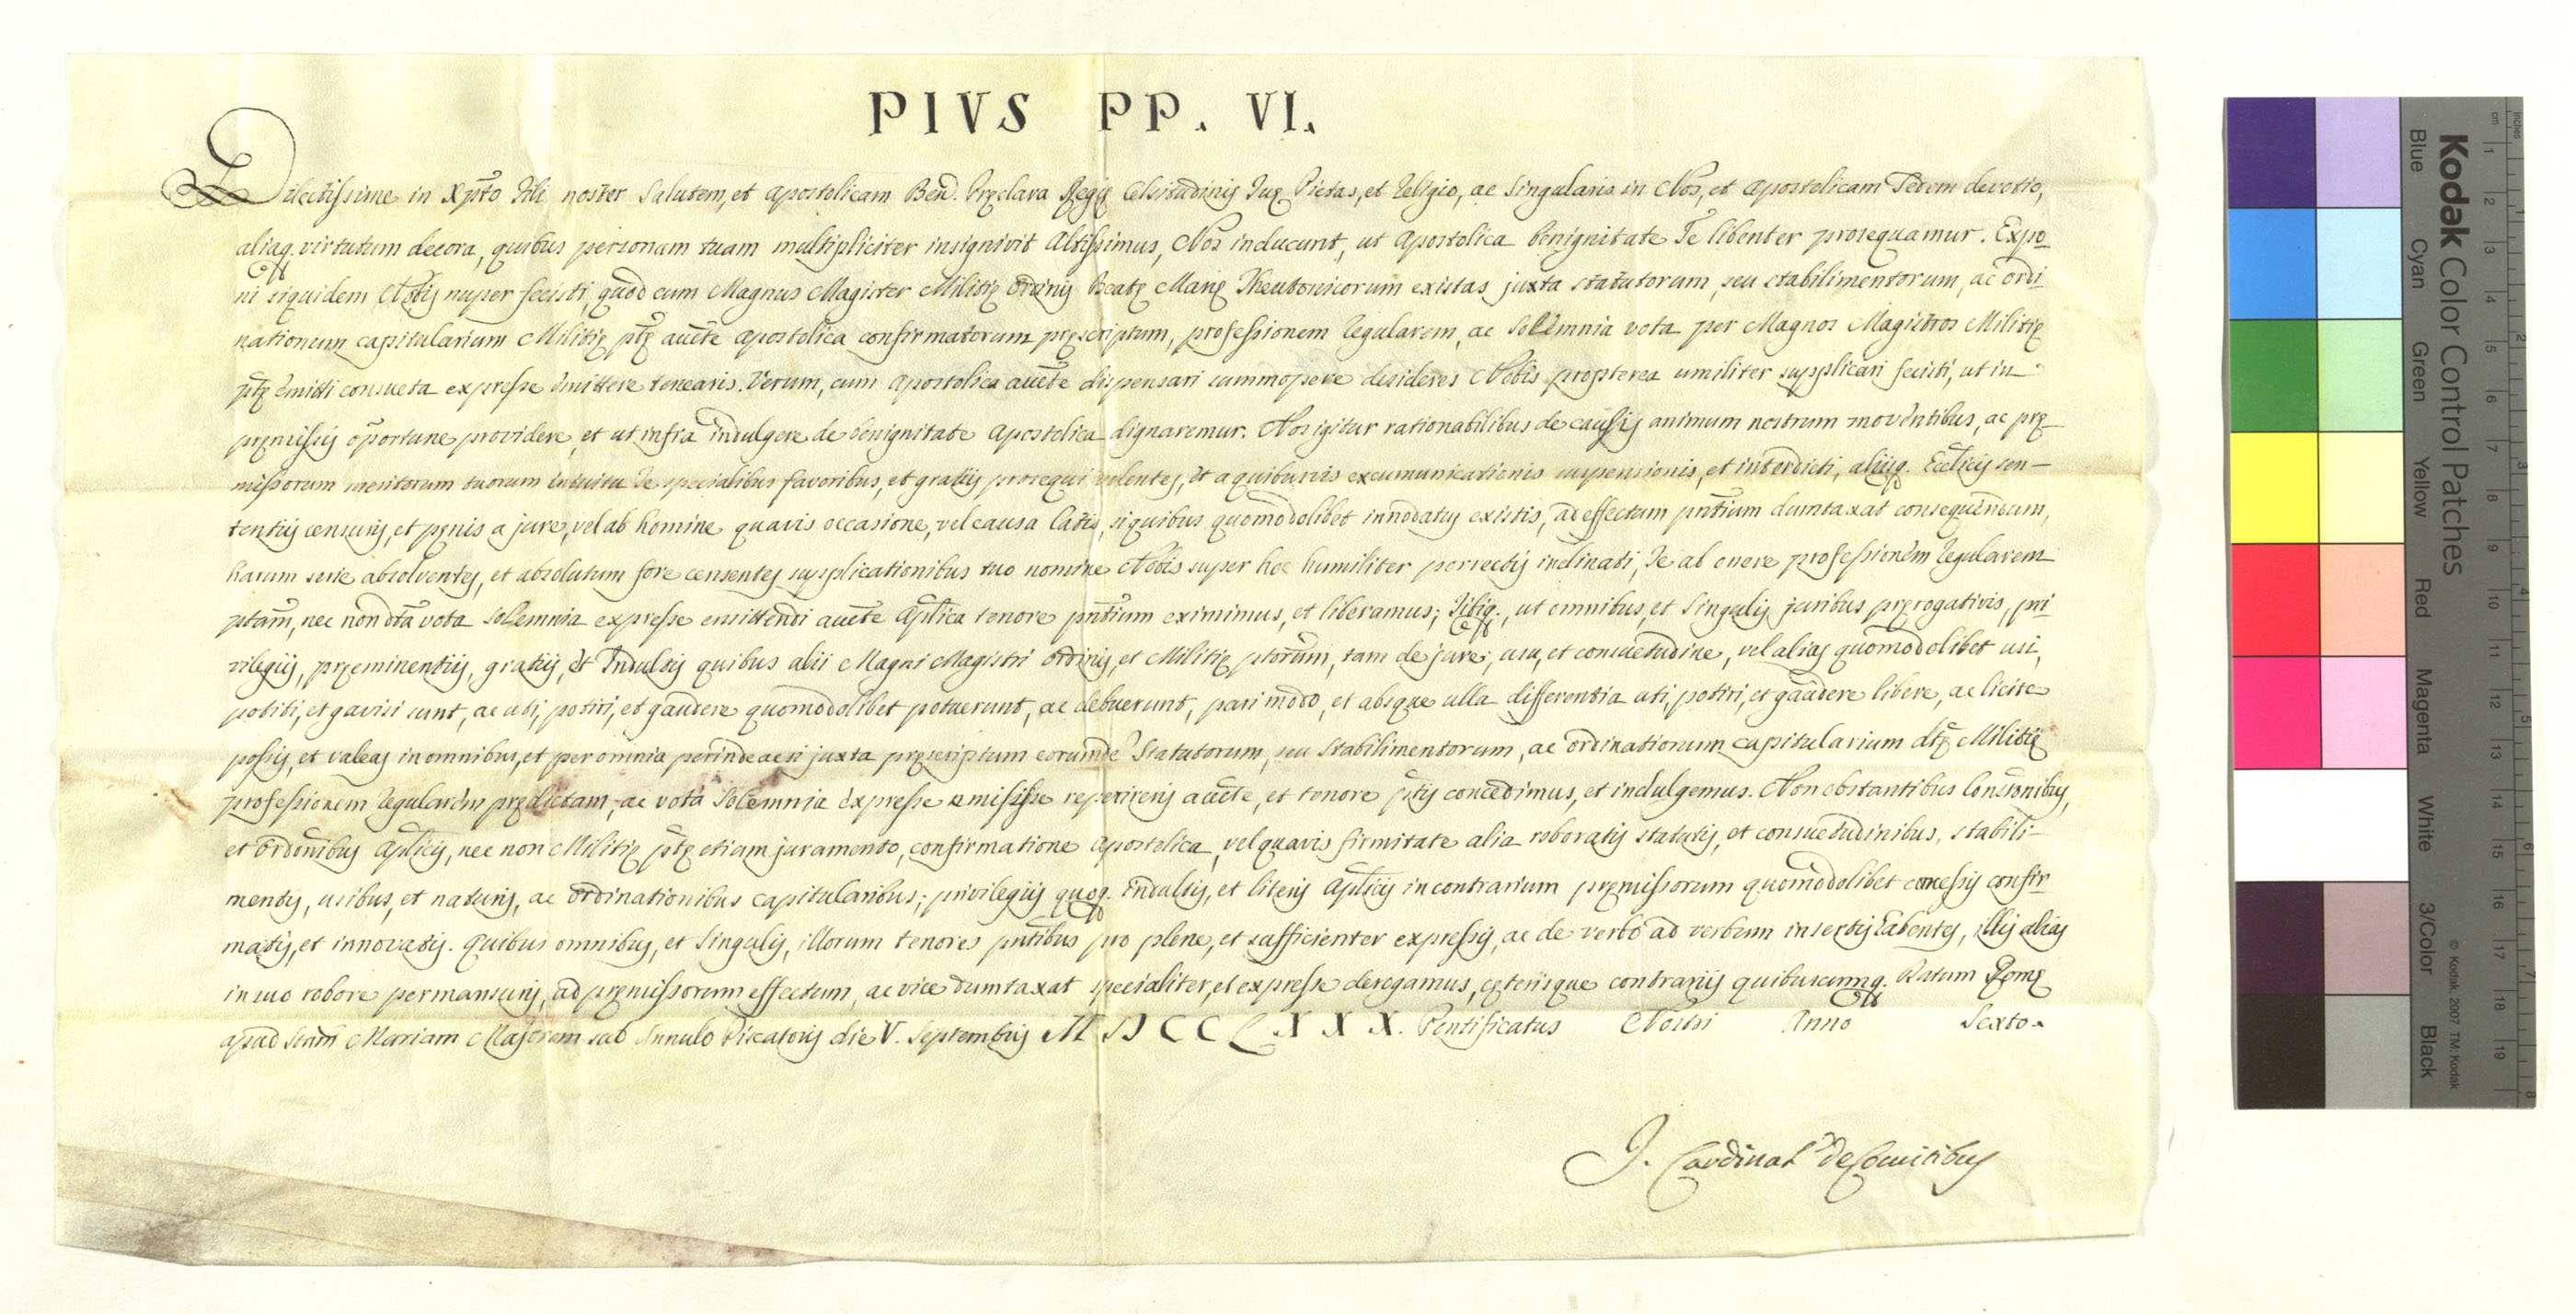 PIVS PP. VI.
Dilectissime in Xp̃to Fili noster Salutem, et Apostolicam Ben̄. Pręclara Regię Celsitudinis Tuę Pietas, et Religio, ac Singularis in Nos, et Apostolicam Sedem devotio,
aliaq. virtutum decora, quibus personam tuam multipliciter insignivit Altissimus, Nos inducunt, ut Apostolica benignitate Te libenter prosequamur. Expo-
ni siquidem Nobis nuper fecisti, quod cum Magnus Magister Militię Ordinis Beatę Marię Theutonicorum existas juxta statutorum, seu stabilimentorum, ac ordi-
nationum capitularium Militię p̃tę aucte Apostolica confirmatorum pręscriptum, professionem Regularem, ac Solemnia vota per Magnos Magistros Militię
p̃tę emitti consueta expresse emittere tenearis. Verum, cum Apostolica aucte dispensari summopere desideres Nobis propterea umiliter supplicari fecisti, ut in
pręmissis oportune providere, et ut infra indulgere de benignitate Apostolica dignaremur. Nos igitur rationabilibus de causis animum nostrum moventibus, ac prę-
missorum meritorum tuorum intuitu Te specialibus favoribus, et gratiis prosequi volentes, et a quibusvis excumunicationis suspensionis, et interdicti, aliisq. Ecclicis sen-
tentiis censuris, et pęnis a jure, vel ab homine quavis occasione, vel causa latis, siquibus quomodolibet innodatus existis, ad effectum pñtium dumtaxat consequendum,
harum serie absolventes, et absolutum fore censentes supplicationibus tuo nomine Nobis super hoc humiliter porrectis inclinati, Te ab onere professionem Regularem
ptam, nec non dta vota Solemnia expresse emittendi aucte Aplica tenore pñtium eximimus, et liberamus; Tibiq., ut omnibus, et Singulis juribus prerogativis, pri
vilegiis, pręeminentiis, gratiis, et Indultis quibus alii Magni Magistri Ordinis, et Militię ptorum, tam de jure, usu, et consuetudine, vel alias quomodolibet usi,
potiti, et gavisi sunt, ac uti, potiri, et gaudere quomodolibet potuerunt, ac debuerunt, pari modo, et absque ulla differentia uti, potiri, et gaudere libere, ac licite
possis, et valeas in omnibus, et per omnia perinde ac si juxta pręscriptum eorumdē Statutorum, seu Stabilimentorum, ac ordinationum capitularium dtę Militię
professionem Regularem prędictam, ac vota Solemnia expresse emisisse reperireris aucte, et tenore p̃tis concedimus, et indulgemus. Non obstantibus Constõnibus,
et Ordõnibus Aplicis, nec non Militię p̃tę etiam juramento, confirmatione Apostolica, vel quavis firmitate alia roboratis statutis, et consuetudinibus, stabili-
mentis, usibus, et naturis, ac Ordinationibus capitularibus; privilegiis quoq. indultis, et literis Aplicis in contrarium pręmissorum quomodolibet concessis confir
matis, et innovatis. Quibus omnibus, et Singulis, illorum tenores pñtibus pro plene, et sufficienter expressis, ac de verbo ad verbum insertis habentes, illis alias
in suo robore permansuris, ad pręmissorum effectum, ac vice dumtaxat specialiter, et expresse derogamus, cęterisque contrariis quibuscumq. Datum Romę
apud Stam Mariam Majorem sub Annulo Piscatoris die V. Septembris MDCCLXXX. Pontificatus Nostri Anno Sexto.
J. Cardinal. de Comitibus
Kodak Color Control Patches
Blue Cyan Green Yellow Red Magenta White 3/Color Black
© Kodak, 2007 TM: Kodak
cm 1 2 3 4 5 6 7 8 9 10 11 12 13 14 15 16 17 18 19
inches 1 2 3 4 5 6 7 8